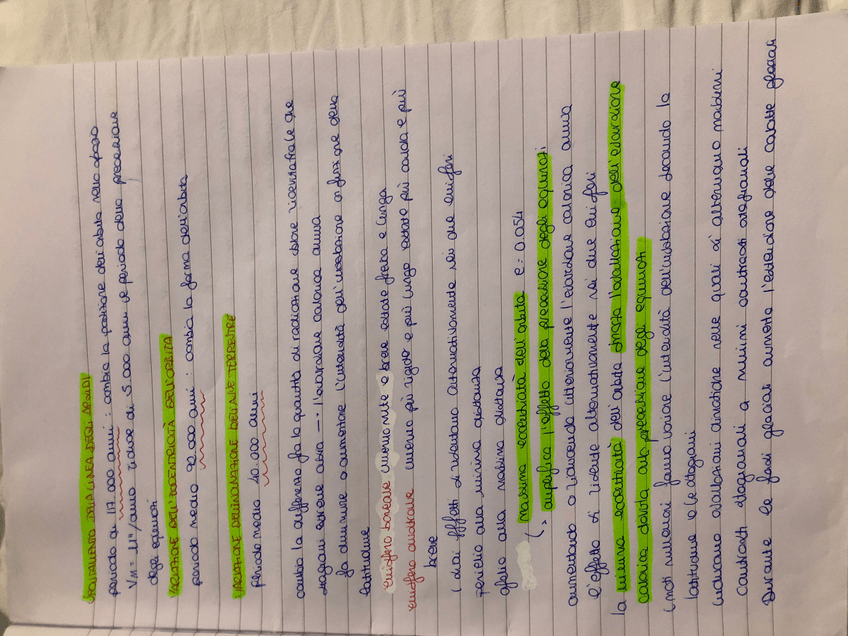 SPOSTAMENTO DELLA LINEA DEGLI APSIDI
periodo di 117.000 anni : cambia la posizione dell'orbita nello spazio
VM = 11"/anno riduce di 5.000 anni il periodo della precessione
degli equinozi
VARIAZIONE DELL'ECCENTRICITÀ DELL'ORBITA
periodo medio 92.000 anni : cambia la forma dell'orbita
VARIAZIONE DELL'INCLINAZIONE DELL'ASSE TERRESTRE
periodo medio 40.000 anni
cambia la differenza fra la quantità di radiazione solare ricevuta fra le due
stagioni estreme ossia → l'escursione calorica annua
fa diminuire o aumentare l'intensità dell'insolazione in funzione della
latitudine
emisfero boreale inverno mite e breve estate fresca e lunga
emisfero australe inverno più rigido e più lungo estate più calda e più
breve
I due effetti si risentono alternativamente nei due emisferi
perielio alla minima distanza
afelio alla massima distanza
↳ Massima eccentricità dell'orbita e = 0.054
amplifica l'effetto della precessione degli equinozi
aumentando o riducendo ulteriormente l'escursione calorica annua
l'effetto si risente alternativamente nei due emisferi
la minima eccentricità dell'orbita smorza l'oscillazione dell'escursione
calorica dovuta alla precessione degli equinozi
I moti millenari fanno variare l'intensità dell'insolazione secondo la
latitudine e le stagioni
Inducono oscillazioni climatiche nelle quali si alternano massimi
contrasti stagionali a minimi contrasti stagionali
Durante le fasi glaciali aumenta l'estensione delle calotte glaciali